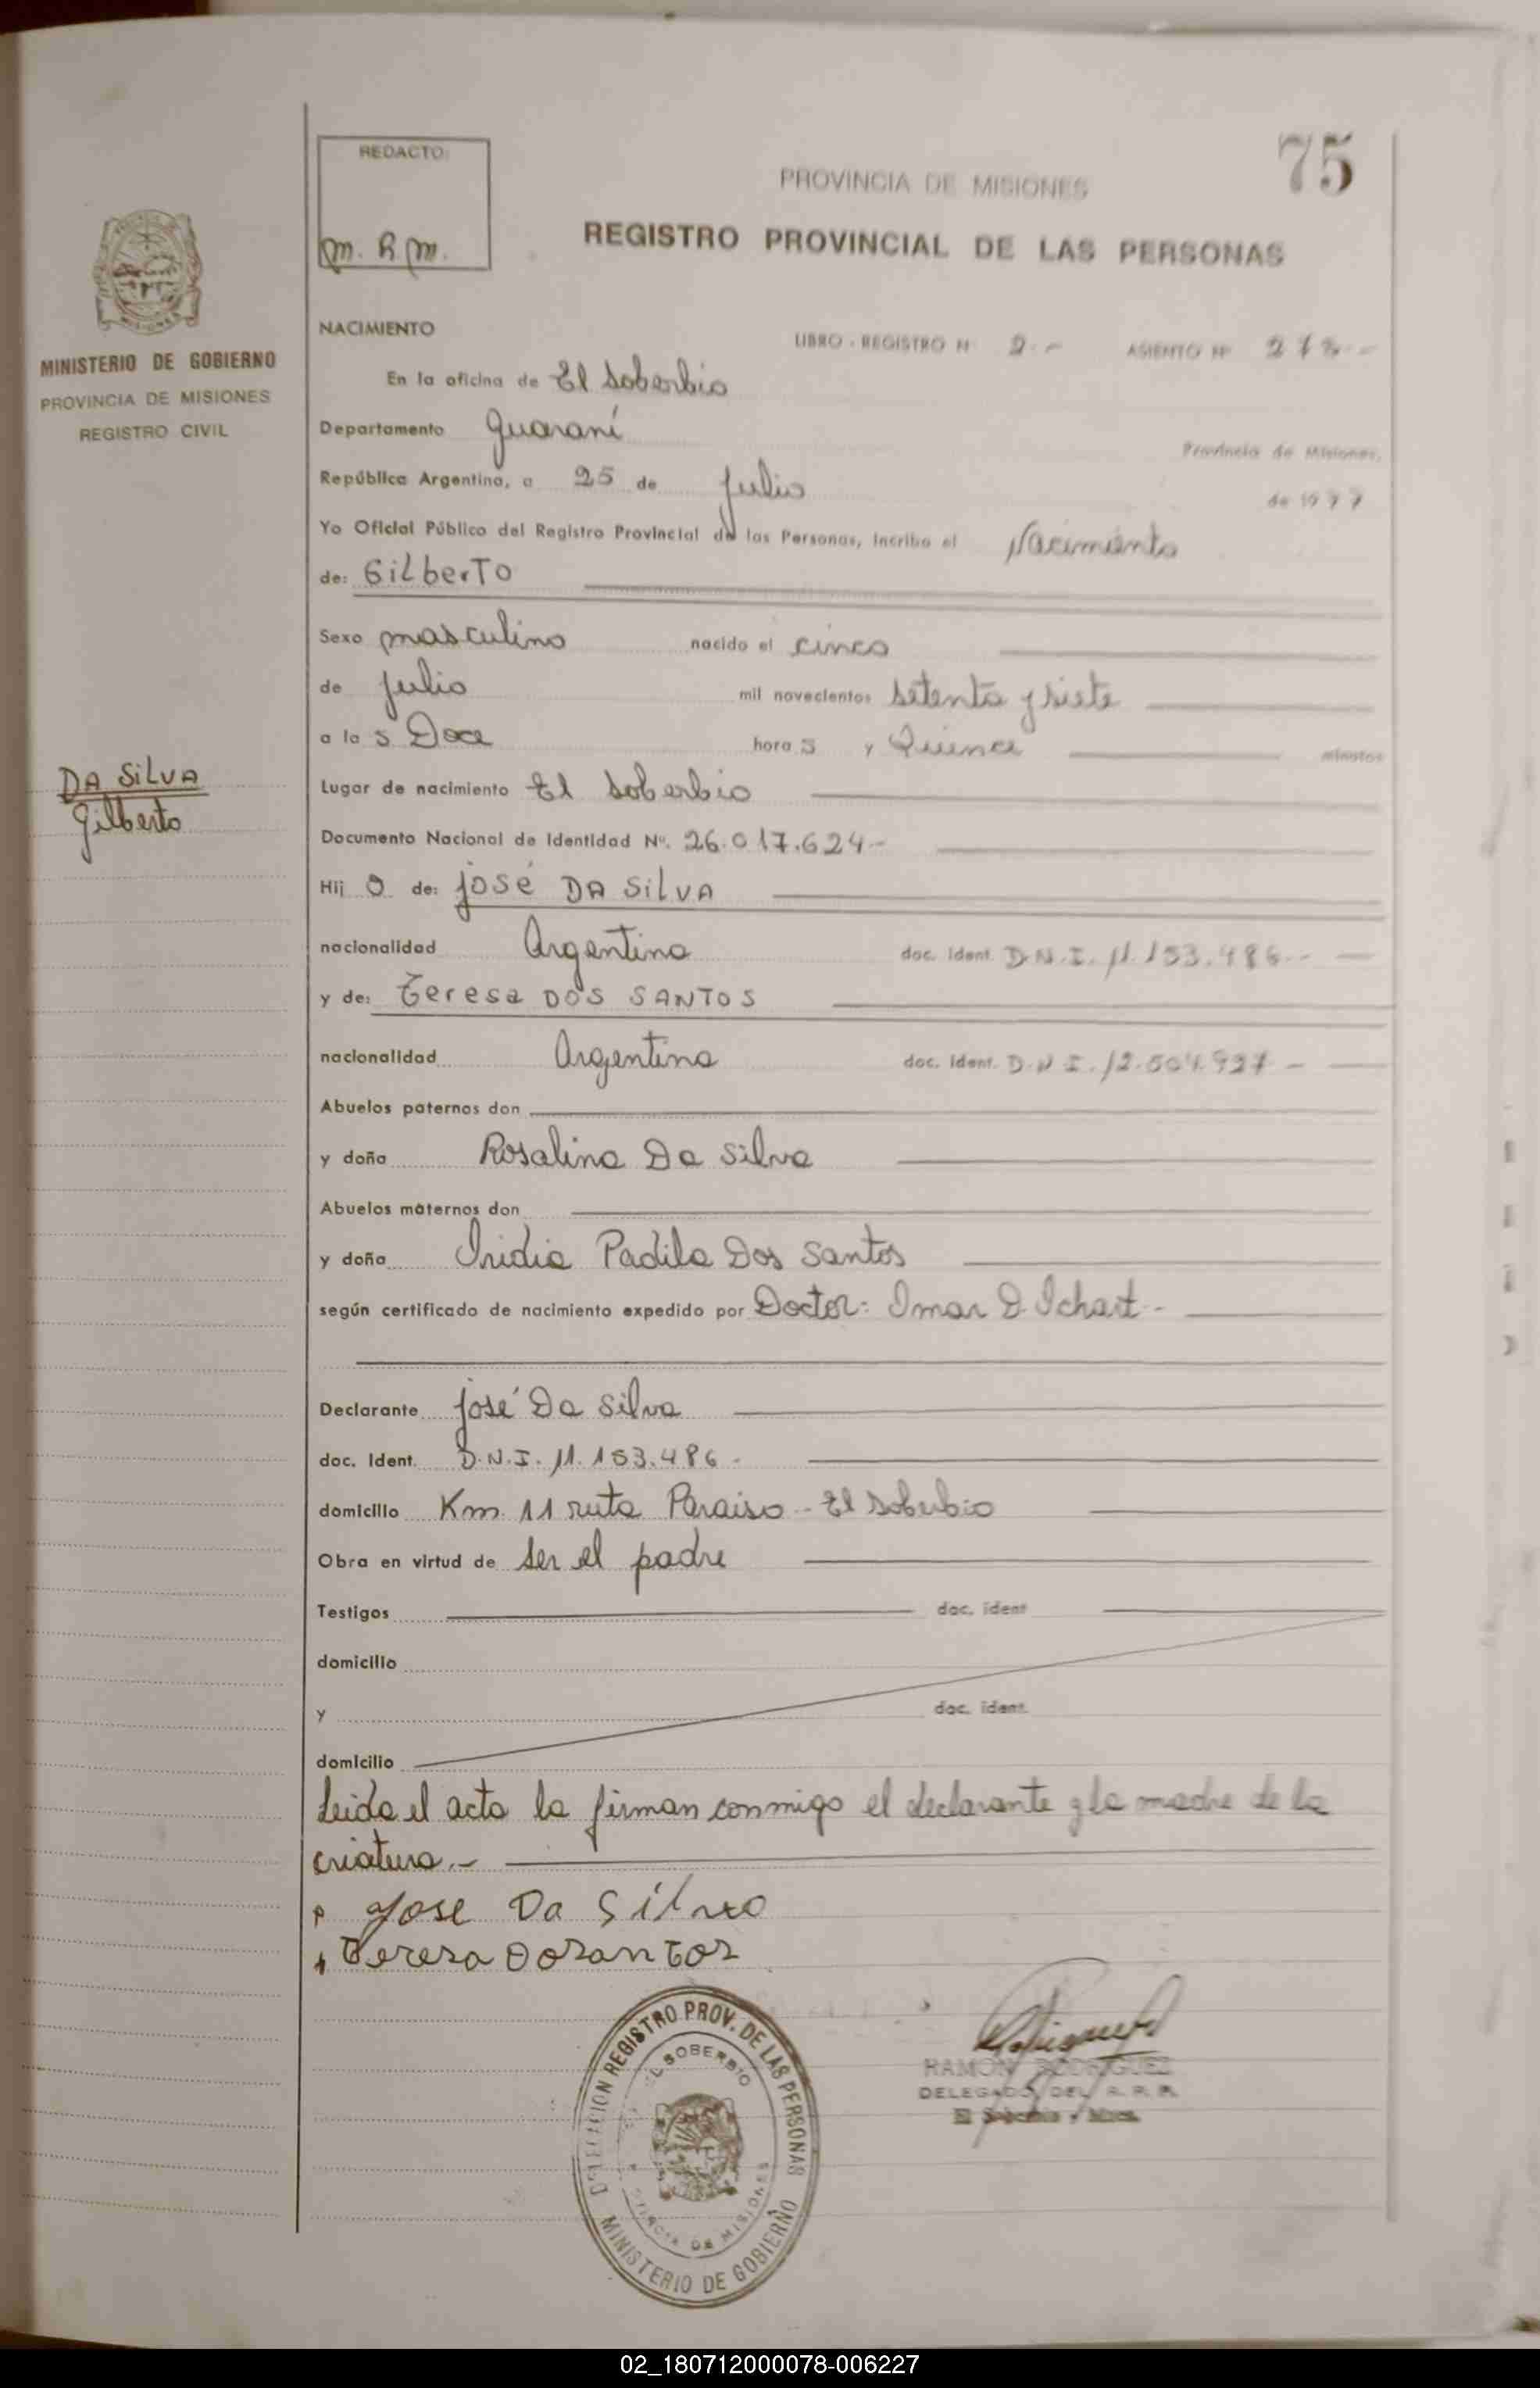 75
REDACTO:
M. R. M.
PROVINCIA DE MISIONES
REGISTRO PROVINCIAL DE LAS PERSONAS
MISIONES
MINISTERIO DE GOBIERNO
PROVINCIA DE MISIONES
REGISTRO CIVIL
NACIMIENTO LIBRO - REGISTRO Nº 2.- ASIENTO Nº
En la oficina de El Soberbio
Departamento Guaraní Provincia de Misiones,
República Argentina, a 25 de Julio de 1977
Yo Oficial Público del Registro Provincial de las Personas, inscribo el Nacimiento
de: GilberTo
Sexo masculino nacido el cinco
de Julio mil novecientos setenta y siete
a la s Doce hora s y Quince minutos
DA SiLVA
Gilberto
Lugar de nacimiento El Soberbio
Documento Nacional de Identidad Nº. 26.017.624-
Hij o de: josé DA SiLVA
nacionalidad Argentina doc. Ident. D.N.I. 11.153.486.-
y de: Teresa DOS SANTOS
nacionalidad Argentina doc. Ident. D.N.I. 12.504.927 -
Abuelos paternos don
y doña Rosalina Da Silva
Abuelos maternos don
y doña Padila Dos Santos
según certificado de nacimiento expedido por Doctor: Omar D Ichart -
Declarante josé Da Silva
doc. Ident. D.N.I. 11.153.486.
domicilio Km. 11 ruta Paraiso - El Soberbio
Obra en virtud de ser el padre
Testigos doc. ident
domicilio
y doc. ident.
domicilio
Leida el acta la firman conmigo el declarante y la madre de la
criatura.-
Jose Da Silva
Teresa Dosantos
DELEGACION REGISTRO PROV. DE LAS PERSONAS
EL SOBERBIO
PROVINCIA DE MISIONES
MINISTERIO DE GOBIERNO
RAMON RODRIGUEZ
DELEGADO DEL R. P. P.
El Soberbio - Mnes.
02_180712000078-006227